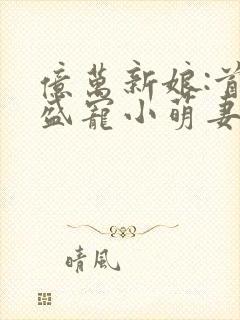 億萬新娘:首
盛寵小萌妻
晴風